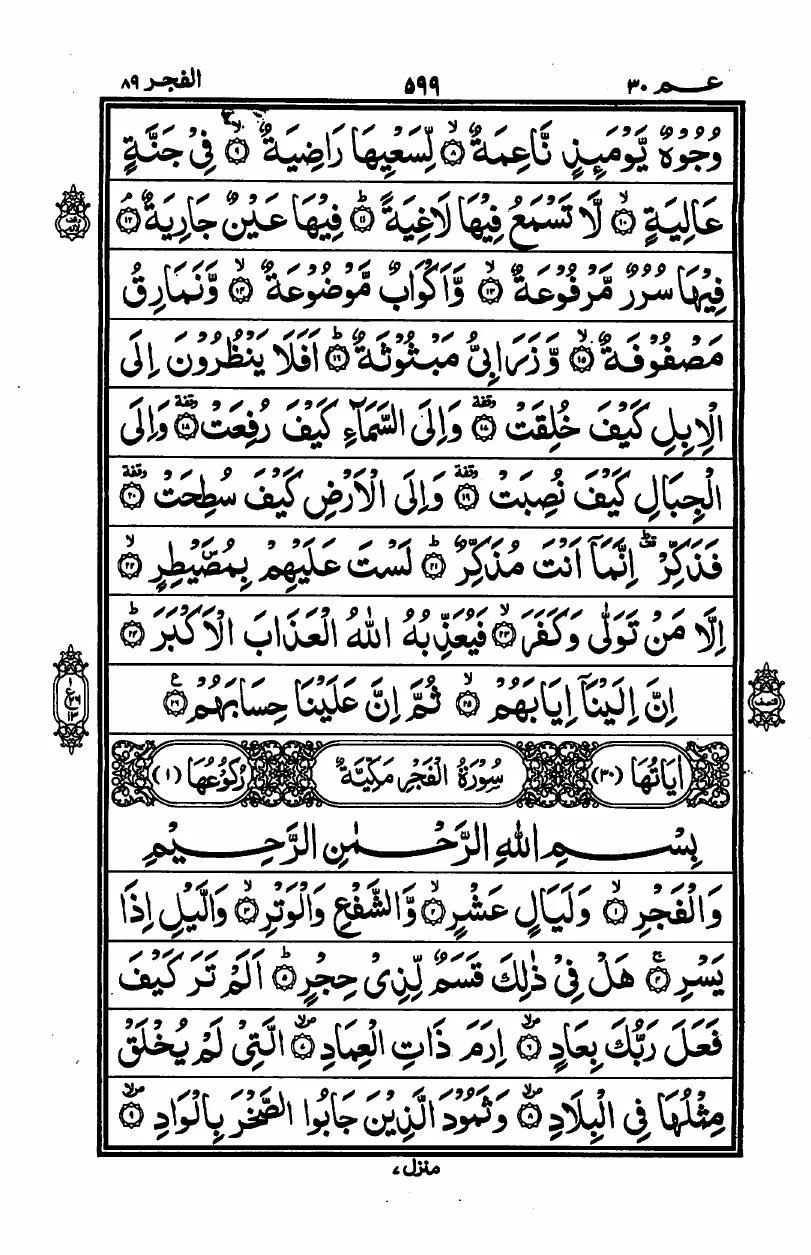 عـــم ٣٠ ٥٩٩ الفجر ٨٩
وُجُوْهٌ يَّوْمَىِٕذٍ نَّاعِمَةٌ ۙ﴿٨﴾ لِّسَعْيِهَا رَاضِيَةٌ ۙ﴿٩﴾ فِيْ جَنَّةٍ
عَالِيَةٍ ۙ﴿١٠﴾ لَّا تَسْمَعُ فِيْهَا لَاغِيَةً ؕ﴿١١﴾ فِيْهَا عَيْنٌ جَارِيَةٌ ۘ﴿١٢﴾
فِيْهَا سُرُرٌ مَّرْفُوْعَةٌ ۙ﴿١٣﴾ وَّاَكْوَابٌ مَّوْضُوْعَةٌ ۙ﴿١٤﴾ وَّنَمَارِقُ
مَصْفُوْفَةٌ ۙ﴿١٥﴾ وَّزَرَابِيُّ مَبْثُوْثَةٌ ؕ﴿١٦﴾ اَفَلَا يَنْظُرُوْنَ اِلَى
الْاِبِلِ كَيْفَ خُلِقَتْ وقفة ﴿١٧﴾ وَاِلَى السَّمَآءِ كَيْفَ رُفِعَتْ وقفة ﴿١٨﴾ وَاِلَى
الْجِبَالِ كَيْفَ نُصِبَتْ وقفة ﴿١٩﴾ وَاِلَى الْاَرْضِ كَيْفَ سُطِحَتْ وقفة ﴿٢٠﴾
فَذَكِّرْ ۫ؕ اِنَّمَآ اَنْتَ مُذَكِّرٌ ؕ﴿٢١﴾ لَسْتَ عَلَيْهِمْ بِمُصَۜيْطِرٍ ۙ﴿٢٢﴾
اِلَّا مَنْ تَوَلّٰى وَكَفَرَ ۙ﴿٢٣﴾ فَيُعَذِّبُهُ اللّٰهُ الْعَذَابَ الْاَكْبَرَ ؕ﴿٢٤﴾
اِنَّ اِلَيْنَاۤ اِيَابَهُمْ ۙ﴿٢٥﴾ ثُمَّ اِنَّ عَلَيْنَا حِسَابَهُمْ ع﴿٢٦﴾
اٰيَاتُهَا (٣٠) سُوْرَةُ الْفَجْرِ مَكِّيَّةٌ رُكُوْعُهَا (١)
بِسْمِ اللّٰهِ الرَّحْمٰنِ الرَّحِيْمِ
وَالْفَجْرِ ۙ﴿١﴾ وَلَيَالٍ عَشْرٍ ۙ﴿٢﴾ وَّالشَّفْعِ وَالْوَتْرِ ۙ﴿٣﴾ وَالَّيْلِ اِذَا
يَسْرِ ۚ﴿٤﴾ هَلْ فِيْ ذٰلِكَ قَسَمٌ لِّذِيْ حِجْرٍ ؕ﴿٥﴾ اَلَمْ تَرَ كَيْفَ
فَعَلَ رَبُّكَ بِعَادٍ ۪ۙ﴿٦﴾ اِرَمَ ذَاتِ الْعِمَادِ ۪ۙ﴿٧﴾ الَّتِيْ لَمْ يُخْلَقْ
مِثْلُهَا فِي الْبِلَادِ ۪ۙ﴿٨﴾ وَثَمُوْدَ الَّذِيْنَ جَابُوا الصَّخْرَ بِالْوَادِ ۪ۙ﴿٩﴾
منزل ٧